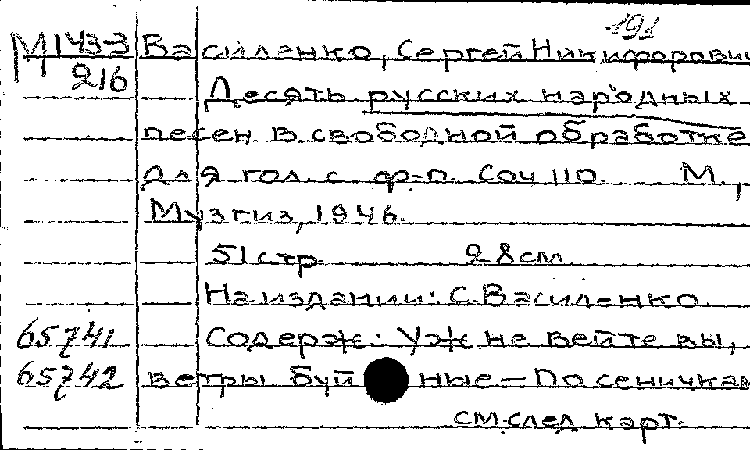 191
М 143-3 Василенко, Сергей Никифорович
216
Десять русских народных
песен в свободной обработке
для гол. с ф-п. Соч 110. М.,
Музгиз, 1946.
51 стр 28 см
На издании: С. Василенко.
65741 Содерж: Уж не вейте вы,
65742 ветры буйные — По сеничкам
см. след карт.